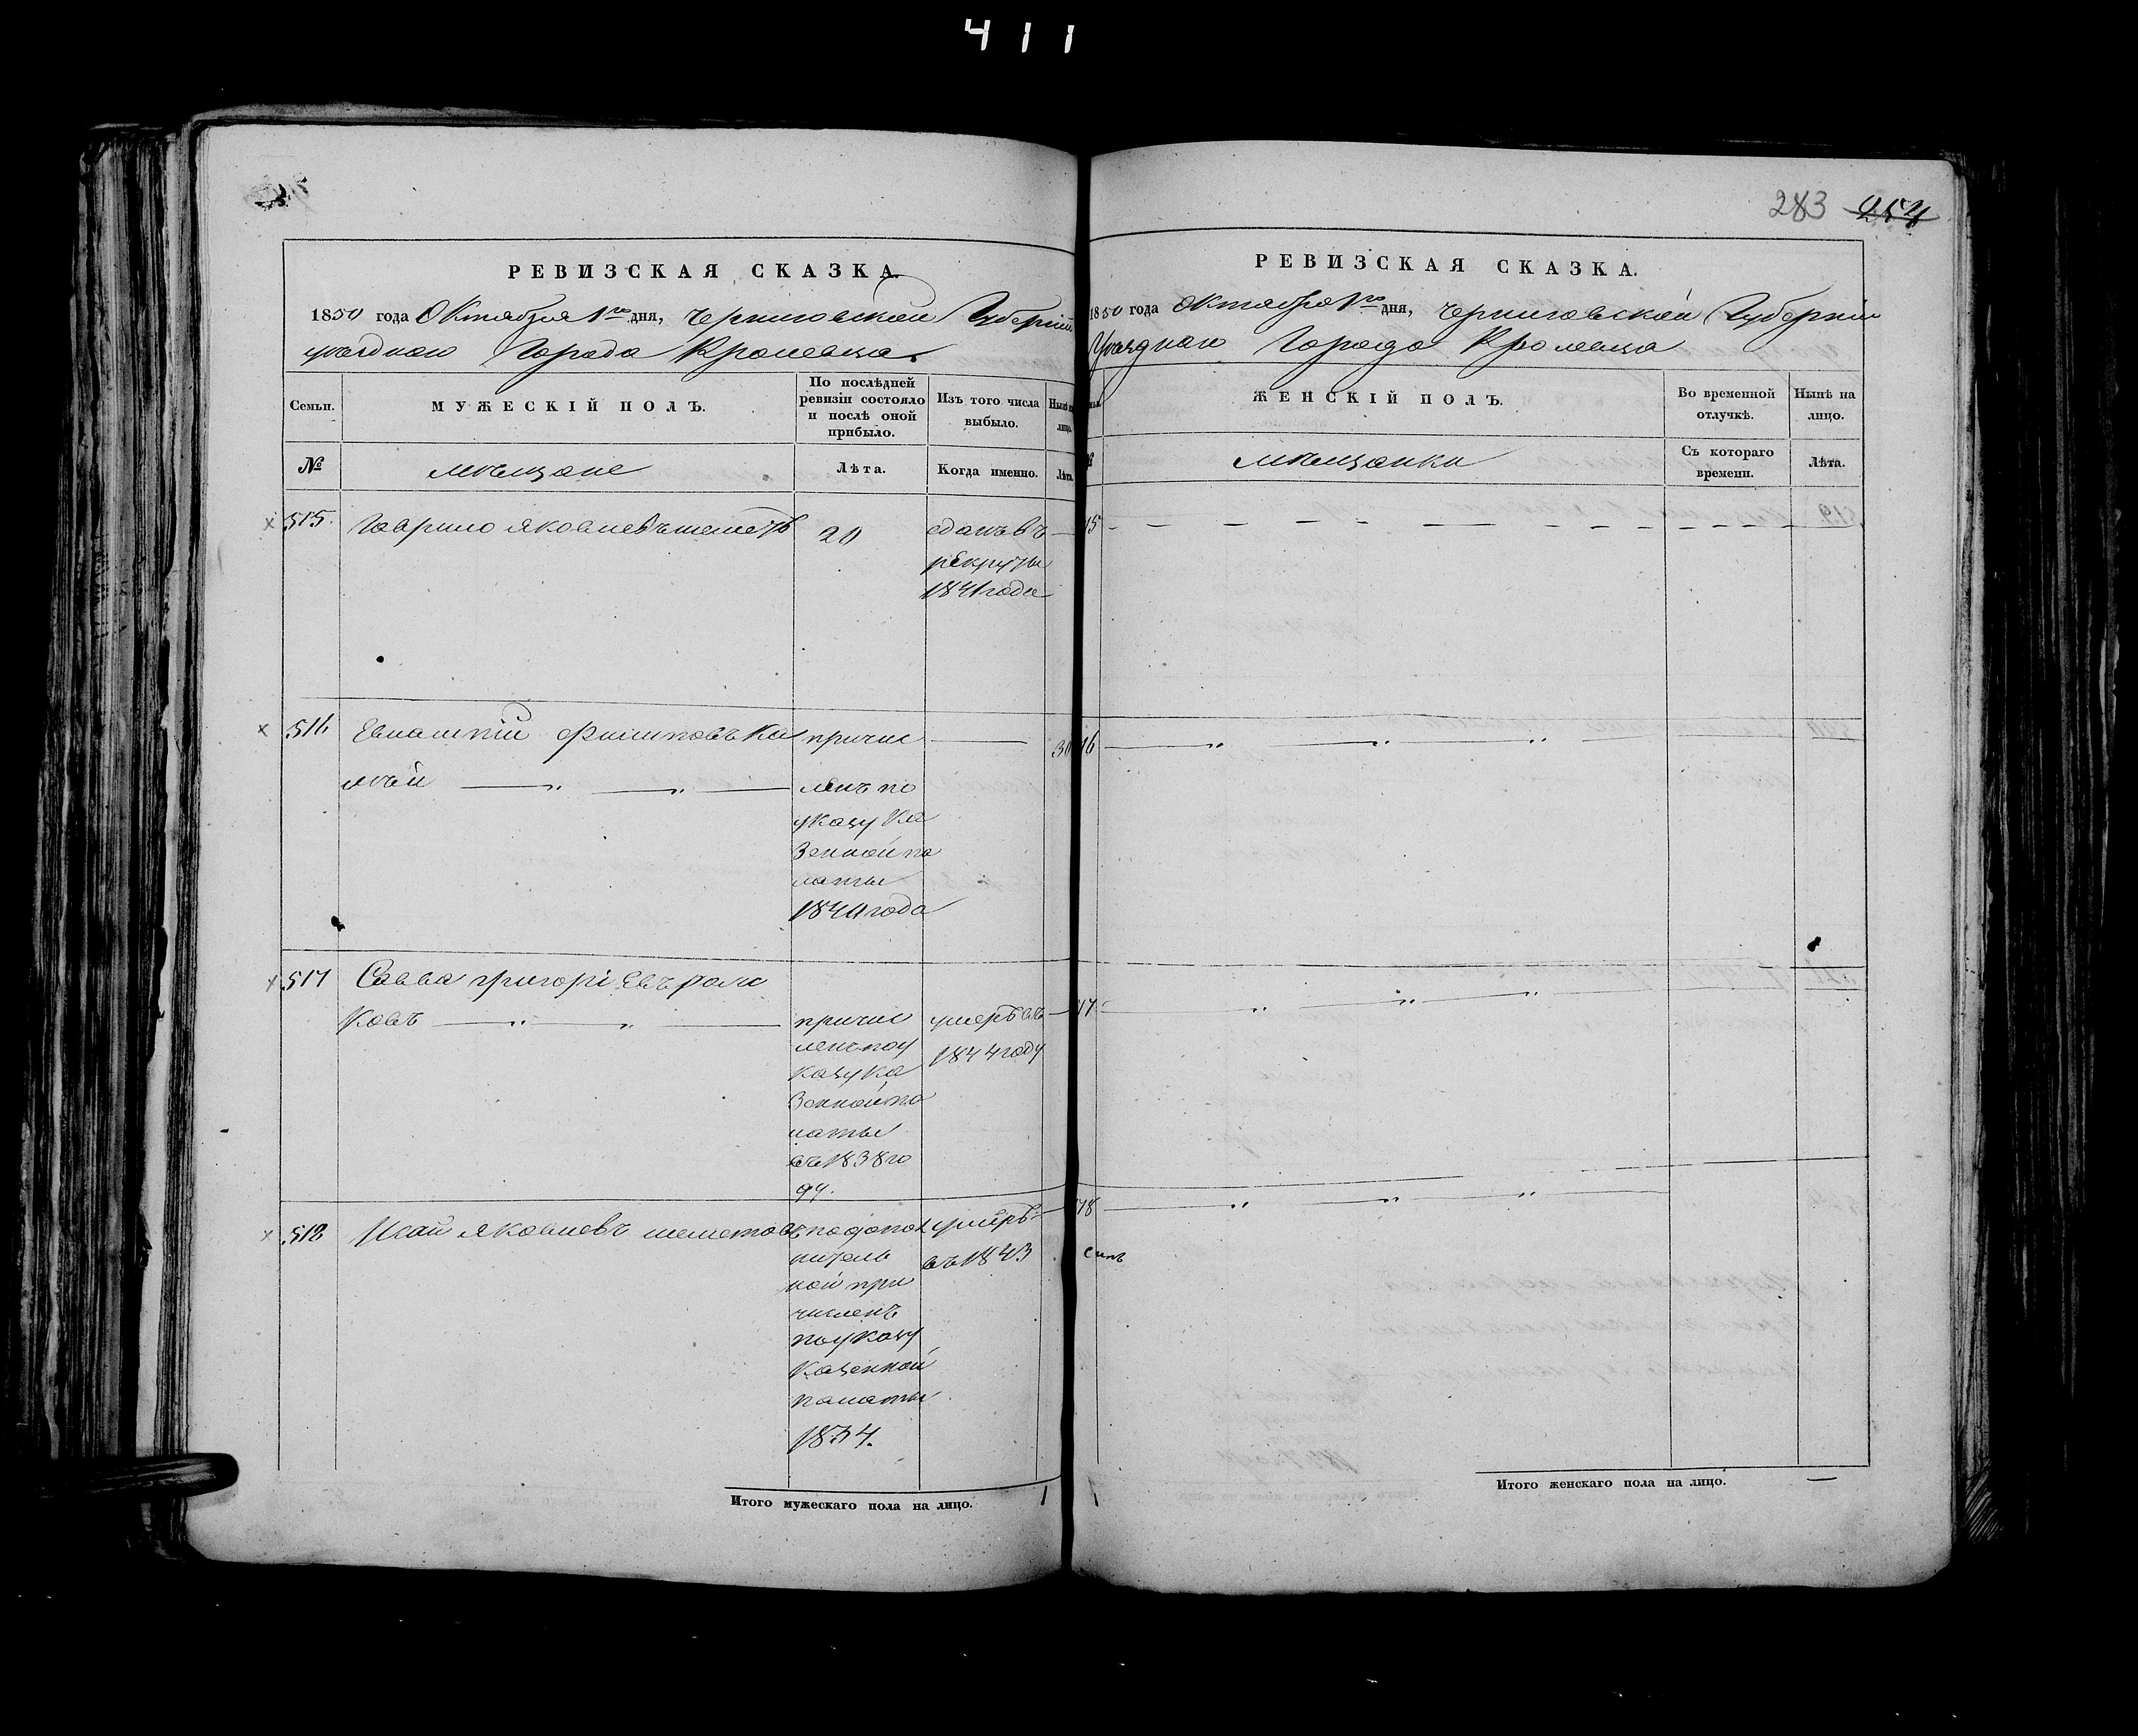 411
283 254
РЕВИЗСКАЯ СКАЗКА.
1850 года Октября 1го дня, Черниговской Губерніи
уѣзднаго Города Кролевца.
Семьи. МУЖЕСКІЙ ПОЛЪ. По послѣдней ревизіи состояло и послѣ оной прибыло. Изъ того числа выбыло. Нынѣ на лицо.
№ мѣщане Лѣта. Когда именно. Лѣта.
515. Гаврило Яковлевъ 20 сданъ въ —
рекруты
1841 года
516 Филиповъ Ка причис — 30
мѣй ленъ по
указу Ка
зенной па
латы
1840 года
517 Савва Григоріевъ
ковъ причис умеръ въ —
ленъ по у 1844 году
казу Ка
зенной па
латы
въ 1838 го
ду.
518 Исай Яковлевъ шеметовъ по допол умеръ —
нитель въ 1843
ной при
численъ
по указу
Казенной
палаты
1834.
Итого мужескаго пола на лицо. 1
РЕВИЗСКАЯ СКАЗКА.
1850 года Октября 1го дня, Черниговской Губерніи
Уѣзднаго Города Кролевца
ЖЕНСКІЙ ПОЛЪ. Во временной отлучкѣ. Нынѣ на лицо.
мѣщанки Съ котораго времени. Лѣта.
15
16
17
18
Итого женскаго пола на лицо. —